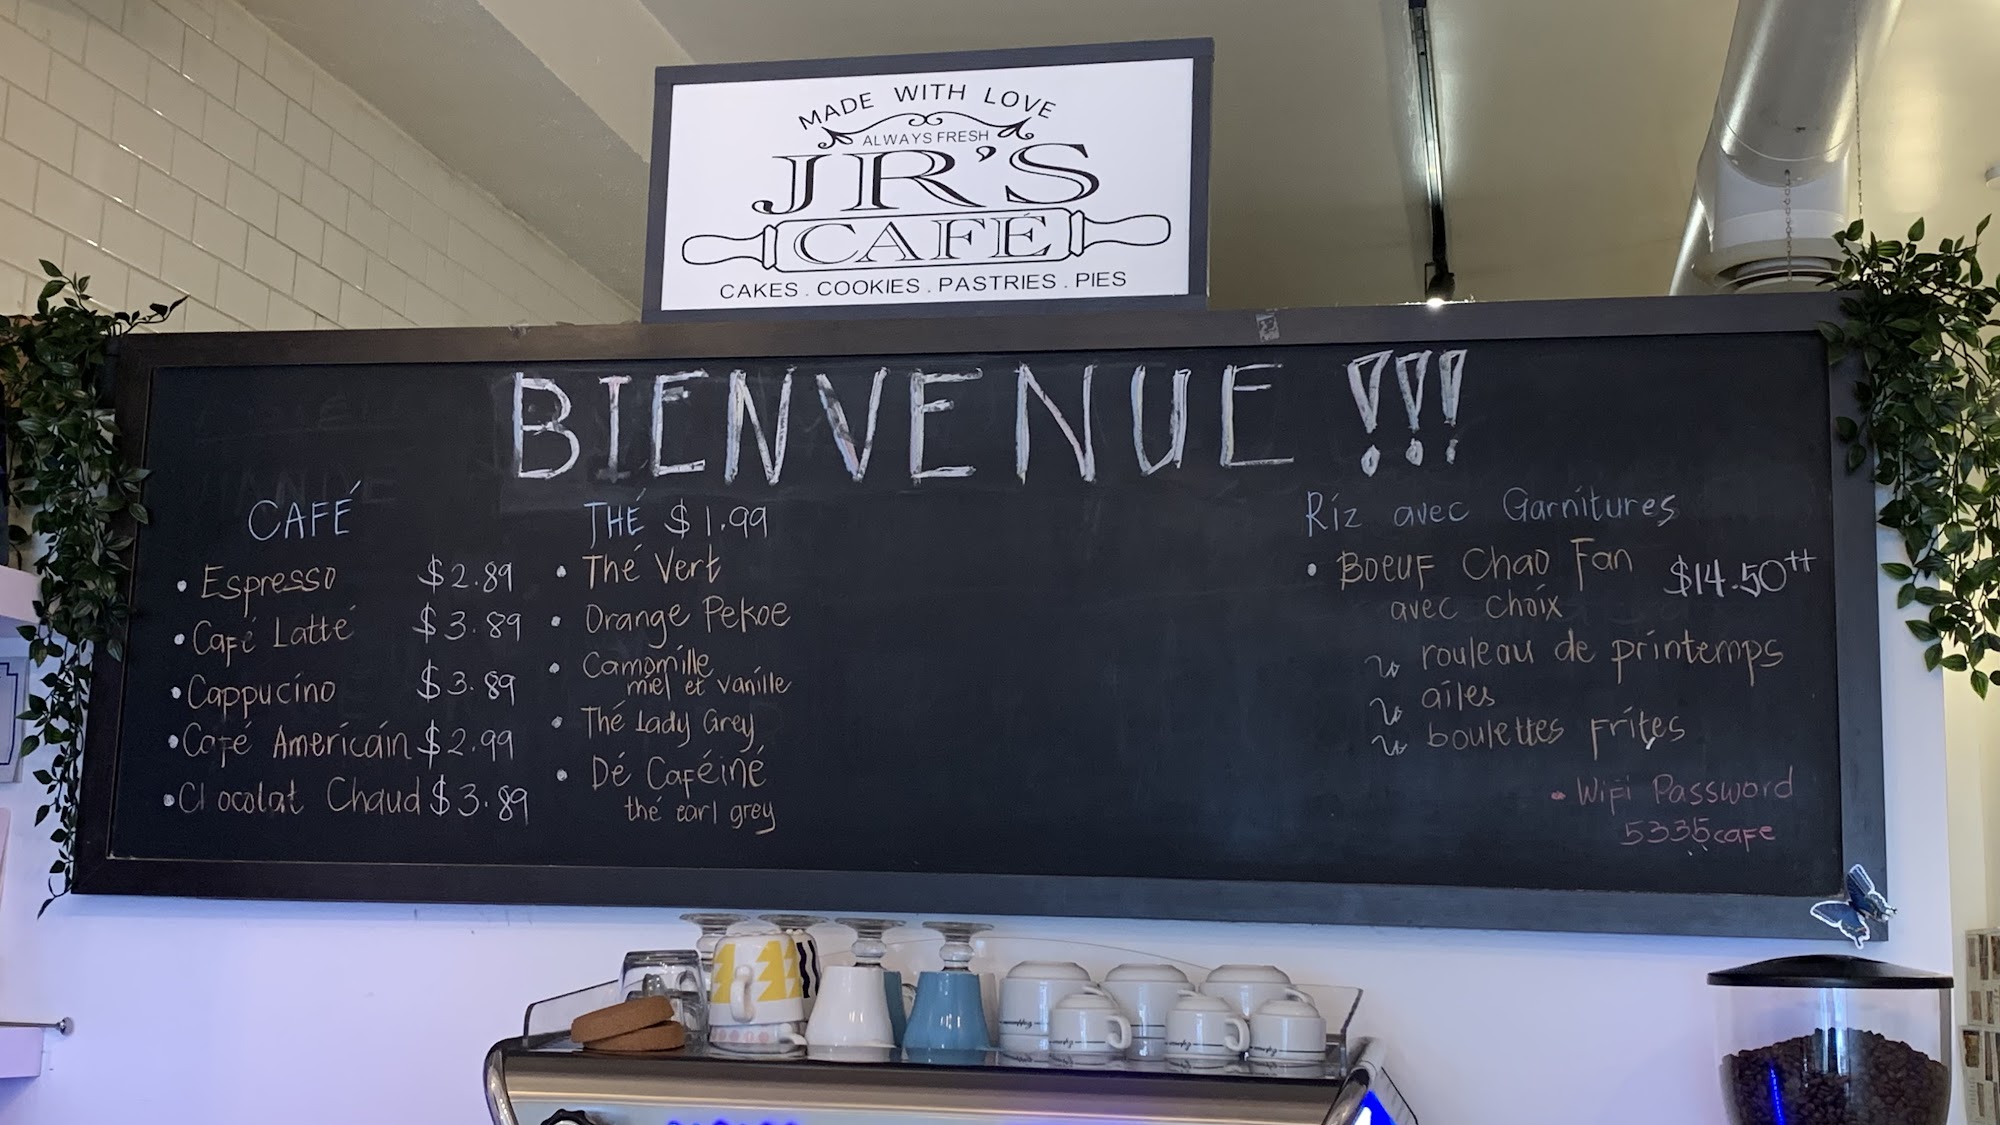 MADE WITH LOVE
ALWAYS FRESH
JR'S
CAFÉ
CAKES . COOKIES . PASTRIES . PIES
BIENVENUE !!!
CAFÉ
• Espresso $2.89
• Café Latté $3.89
• Cappucino $3.89
• Café Américain $2.99
• Chocolat Chaud $3.89
THÉ $1.99
• Thé Vert
• Orange Pekoe
• Camomille
miel et vanille
• Thé Lady Grey
• Dé Caféiné
thé earl grey
Riz avec Garnitures
• Boeuf Chao Fan $14.50++
avec choix
rouleau de printemps
ailes
boulettes frites
• Wifi Password
5335cafe